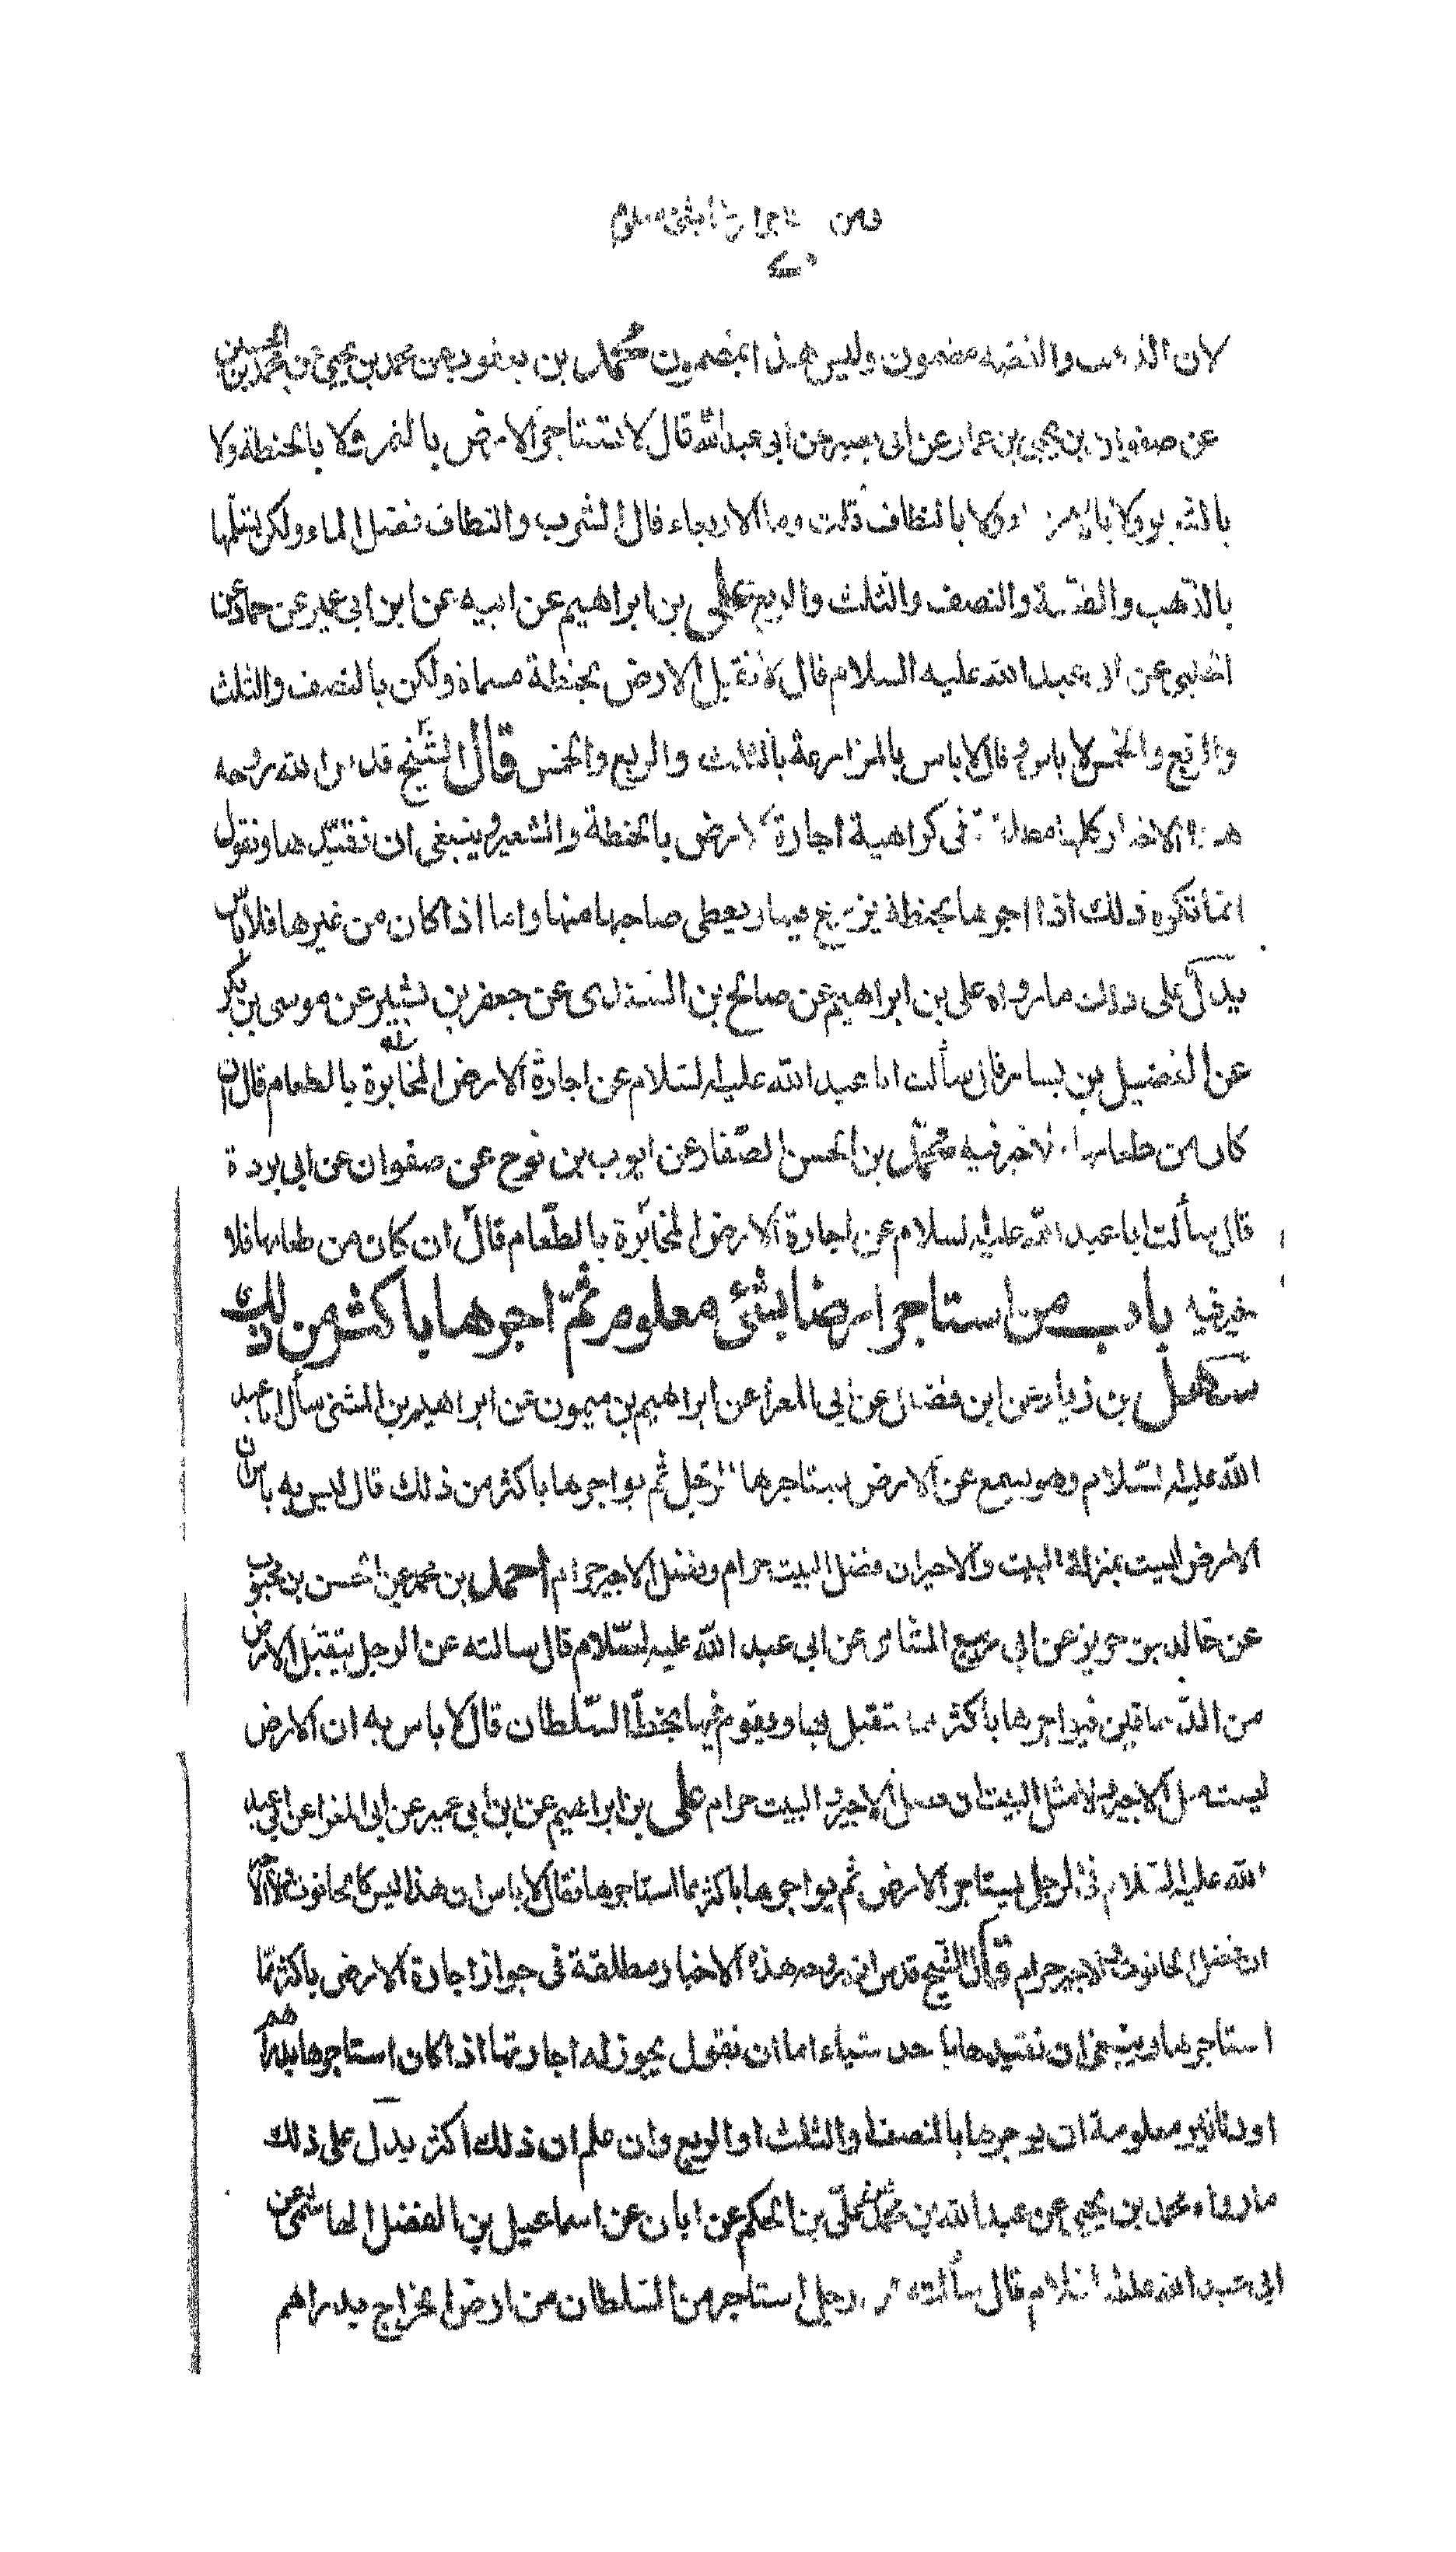 فى من استاجر ارضا بشئ معلوم
لان الذهب والفضه مضمون وليس هذا بمضمون محمد بن يعقوب عن محمد بن يحيى عن محمد بن الحسين
عن صفوان بن يحيى بن عمار عن ابى بصير عن ابى عبدالله قال لا تستاجر الارض بالتمر ولا بالحنطة ولا
بالشعير ولا بالاربعاء ولا بالنطاف قلت وما الاربعاء قال الشرب والنطاف فضل الماء ولكن تقبلها
بالذهب والفضة والنصف والثلث والربع على بن ابراهيم عن ابيه عن ابن ابى عمير عن حماد عن
الحلبى عن ابى عبد الله عليه السلام قال لا تقبل الارض بحنطة مسماة ولكن بالنصف والثلث
والربع والخمس لا باس به وقال لا باس بالمزارعة بالثلث والربع والخمس قال الشيخ قدس الله روحه
هذه الاخبار كلها مطلقة فى كراهية اجارة الارض بالحنطة والشعير وينبغى ان نقيدها ونقول
انما تكره ذلك اذا اجرها بحنطة يزرع فيها ويعطى صاحبها منها واما اذا كان من غيرها فلا باس
يدل على ذلك ما رواه على بن ابراهيم عن صالح بن السندى عن جعفر بن بشير عن موسى بن بكر
عن الفضيل بن يسار قال سألت ابا عبد الله عليه السلام عن اجارة الارض المخابرة بالطعام قال ان
كان من طعامها فلا خير فيه محمد بن الحسن الصفار عن ايوب بن نوح عن صفوان عن ابى بردة
قال سألت ابا عبد الله عليه السلام عن اجارة الارض المخابرة بالطعام قال ان كان من طعامها فلا
خير فيه باب من استاجر ارضا بشئ معلوم ثم اجرها باكثر من ذلك
سهل بن زياد عن ابن فضال عن ابى المعزا عن ابراهيم بن ميمون عن ابراهيم بن المثنى سأل ابا عبد
الله عليه السلام وهو يسمع عن الارض يستاجرها الرجل ثم يواجرها باكثر من ذلك قال ليس به باس ان
الارض ليست بمنزلة البيت والاجير ان فضل البيت حرام وفضل الاجير حرام احمد بن محمد عن الحسن بن محبوب
عن خالد بن جرير عن ابى ربيع الشامى عن ابى عبد الله عليه السلام قال سالته عن الرجل يتقبل الارض
من الدهاقين فيواجرها باكثر مما يتقبل بها ويقوم فيها بحظ السلطان قال لا باس به ان الارض
ليست مثل الاجير ولا مثل البيت ان فضل الاجير والبيت حرام على بن ابراهيم عن بن ابى عمير عن ابى المغرا عن ابى عبد
الله عليه السلام فى الرجل يستاجر الارض ثم يواجرها باكثر مما استاجرها فقال لا باس ان هذا ليس كالحانوت ولا الاجير
ان فضل الحانوت والاجير حرام قال الشيخ قدس الله روحه هذه الاخبار مطلقة فى جواز اجارة الارض باكثر مما
استاجرها وينبغى ان نقيدها باحد اشياء اما ان نقول يجوز له اجارتها اذا كان استاجرها بدراهم
او دنانير معلومة ان يوجرها بالنصف او الثلث او الربع وان علم ان ذلك اكثر يدل على ذلك
ما رواه محمد بن يحيى عن عبد الله بن محمد عن على بن الحكم عن ابان عن اسماعيل بن الفضل الهاشمى عن
ابى عبد الله عليه السلام قال سألته عن رجل استاجر من السلطان من ارض الخراج بدراهم